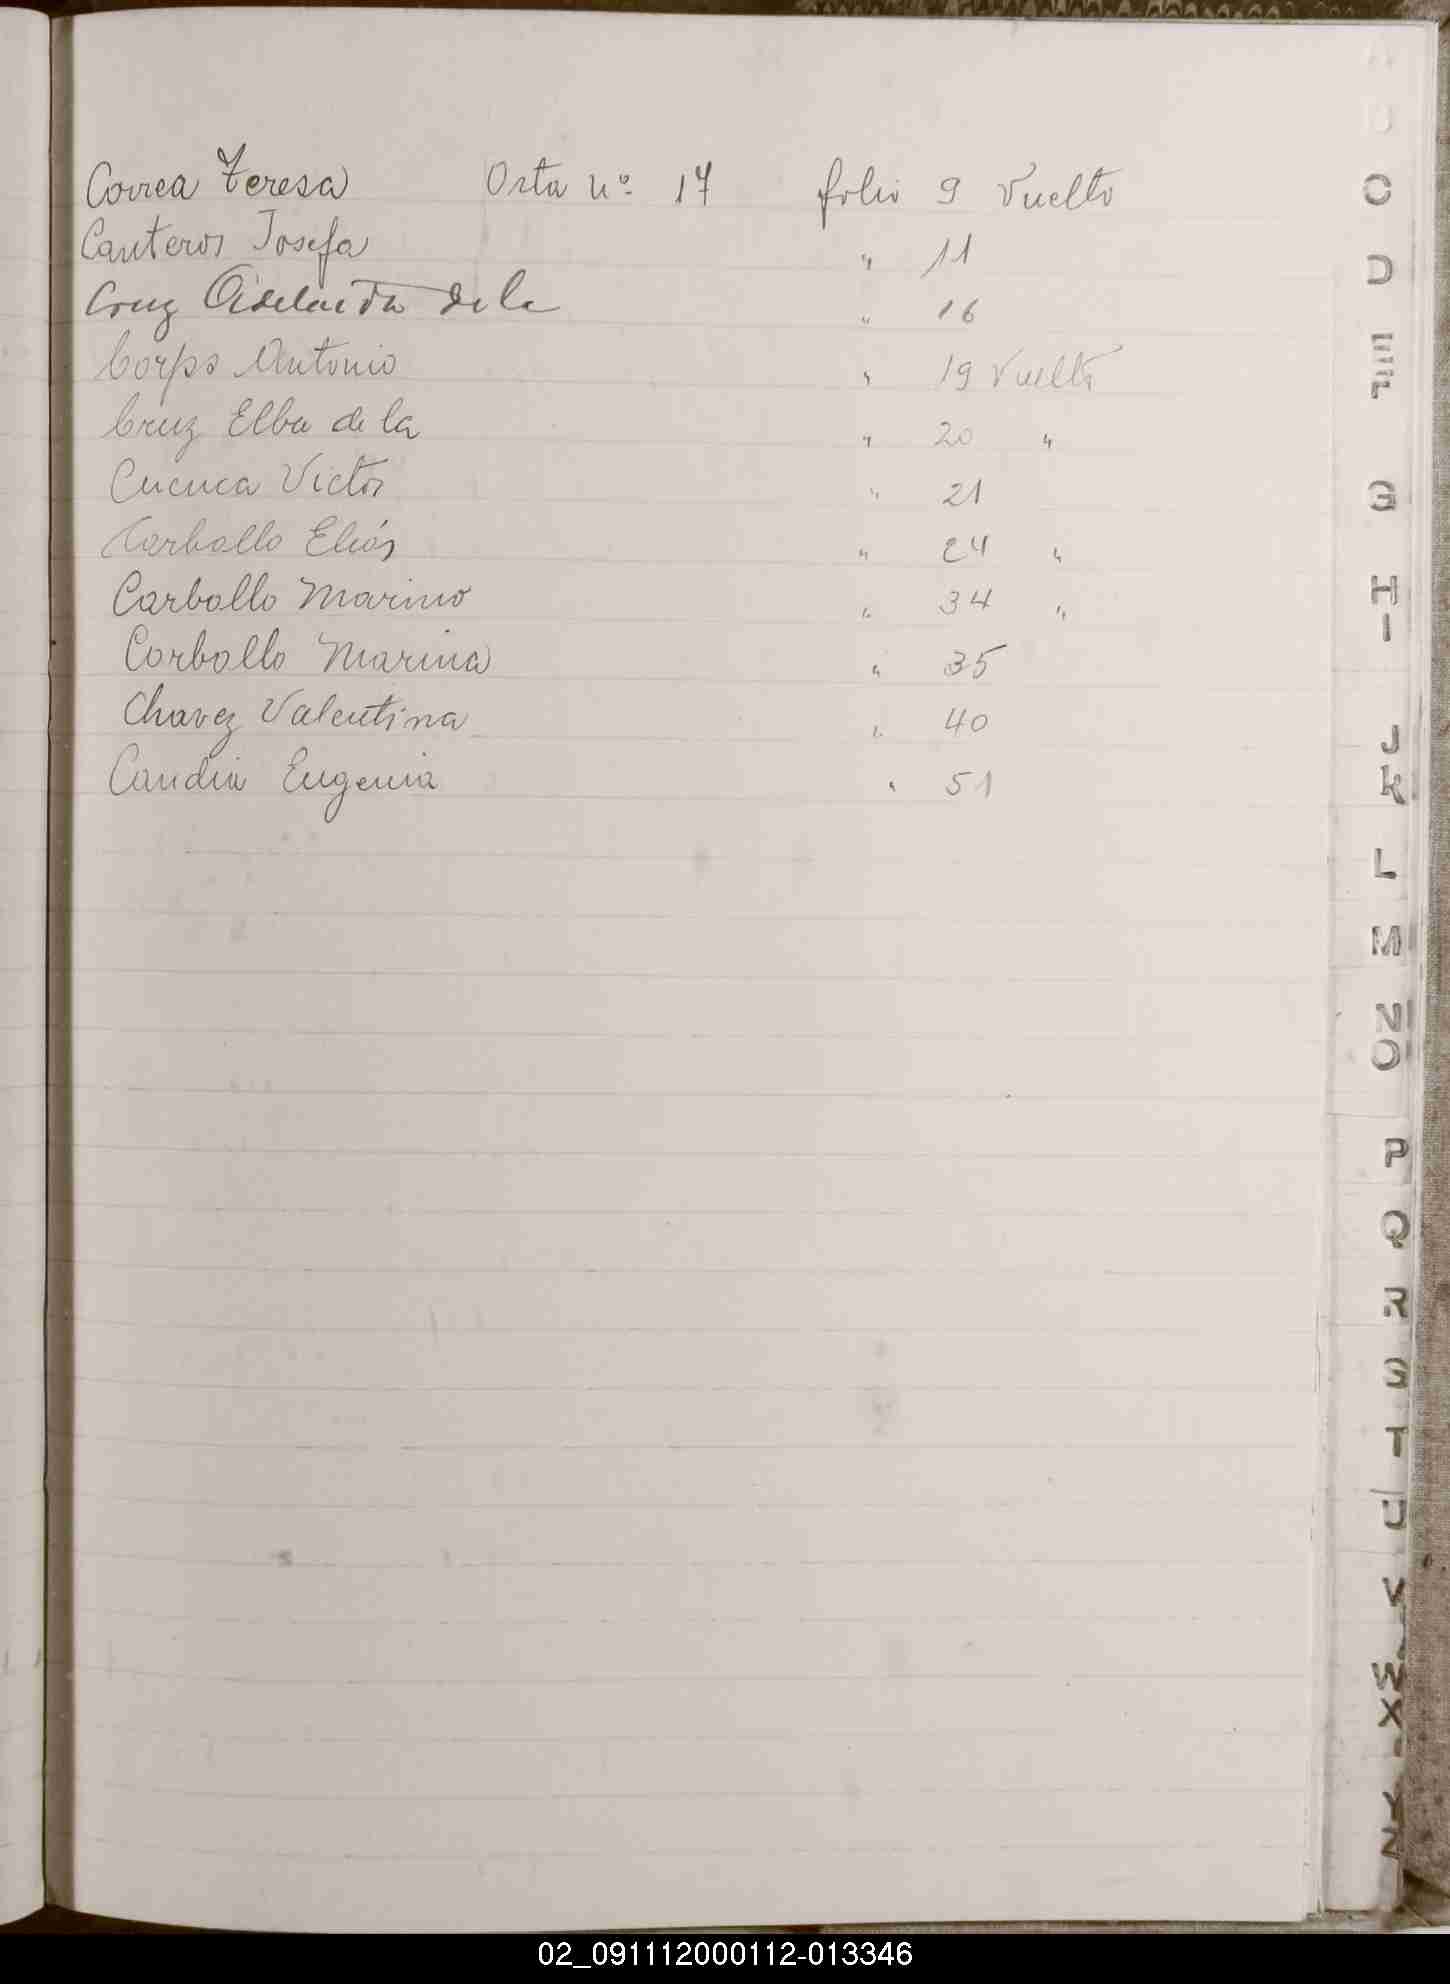 Correa Teresa Orta nº 17 folio 9 Vuelto
Canteros Josefa " 11
Cruz Adelaida de la " 16
Corps Antonio " 19 Vuelto
Cruz Elba de la " 20 "
Cuenca Victor " 21
Carballo Eliás " 24 "
Carballo Marino " 34 "
Carballo Marina " 35
Chavez Valentina " 40
Candia Eugenia " 51
C
D
E
F
G
H
I
J
K
L
M
N
O
P
Q
R
S
T
U
V
W
X
Y
Z
02_091112000112-013346